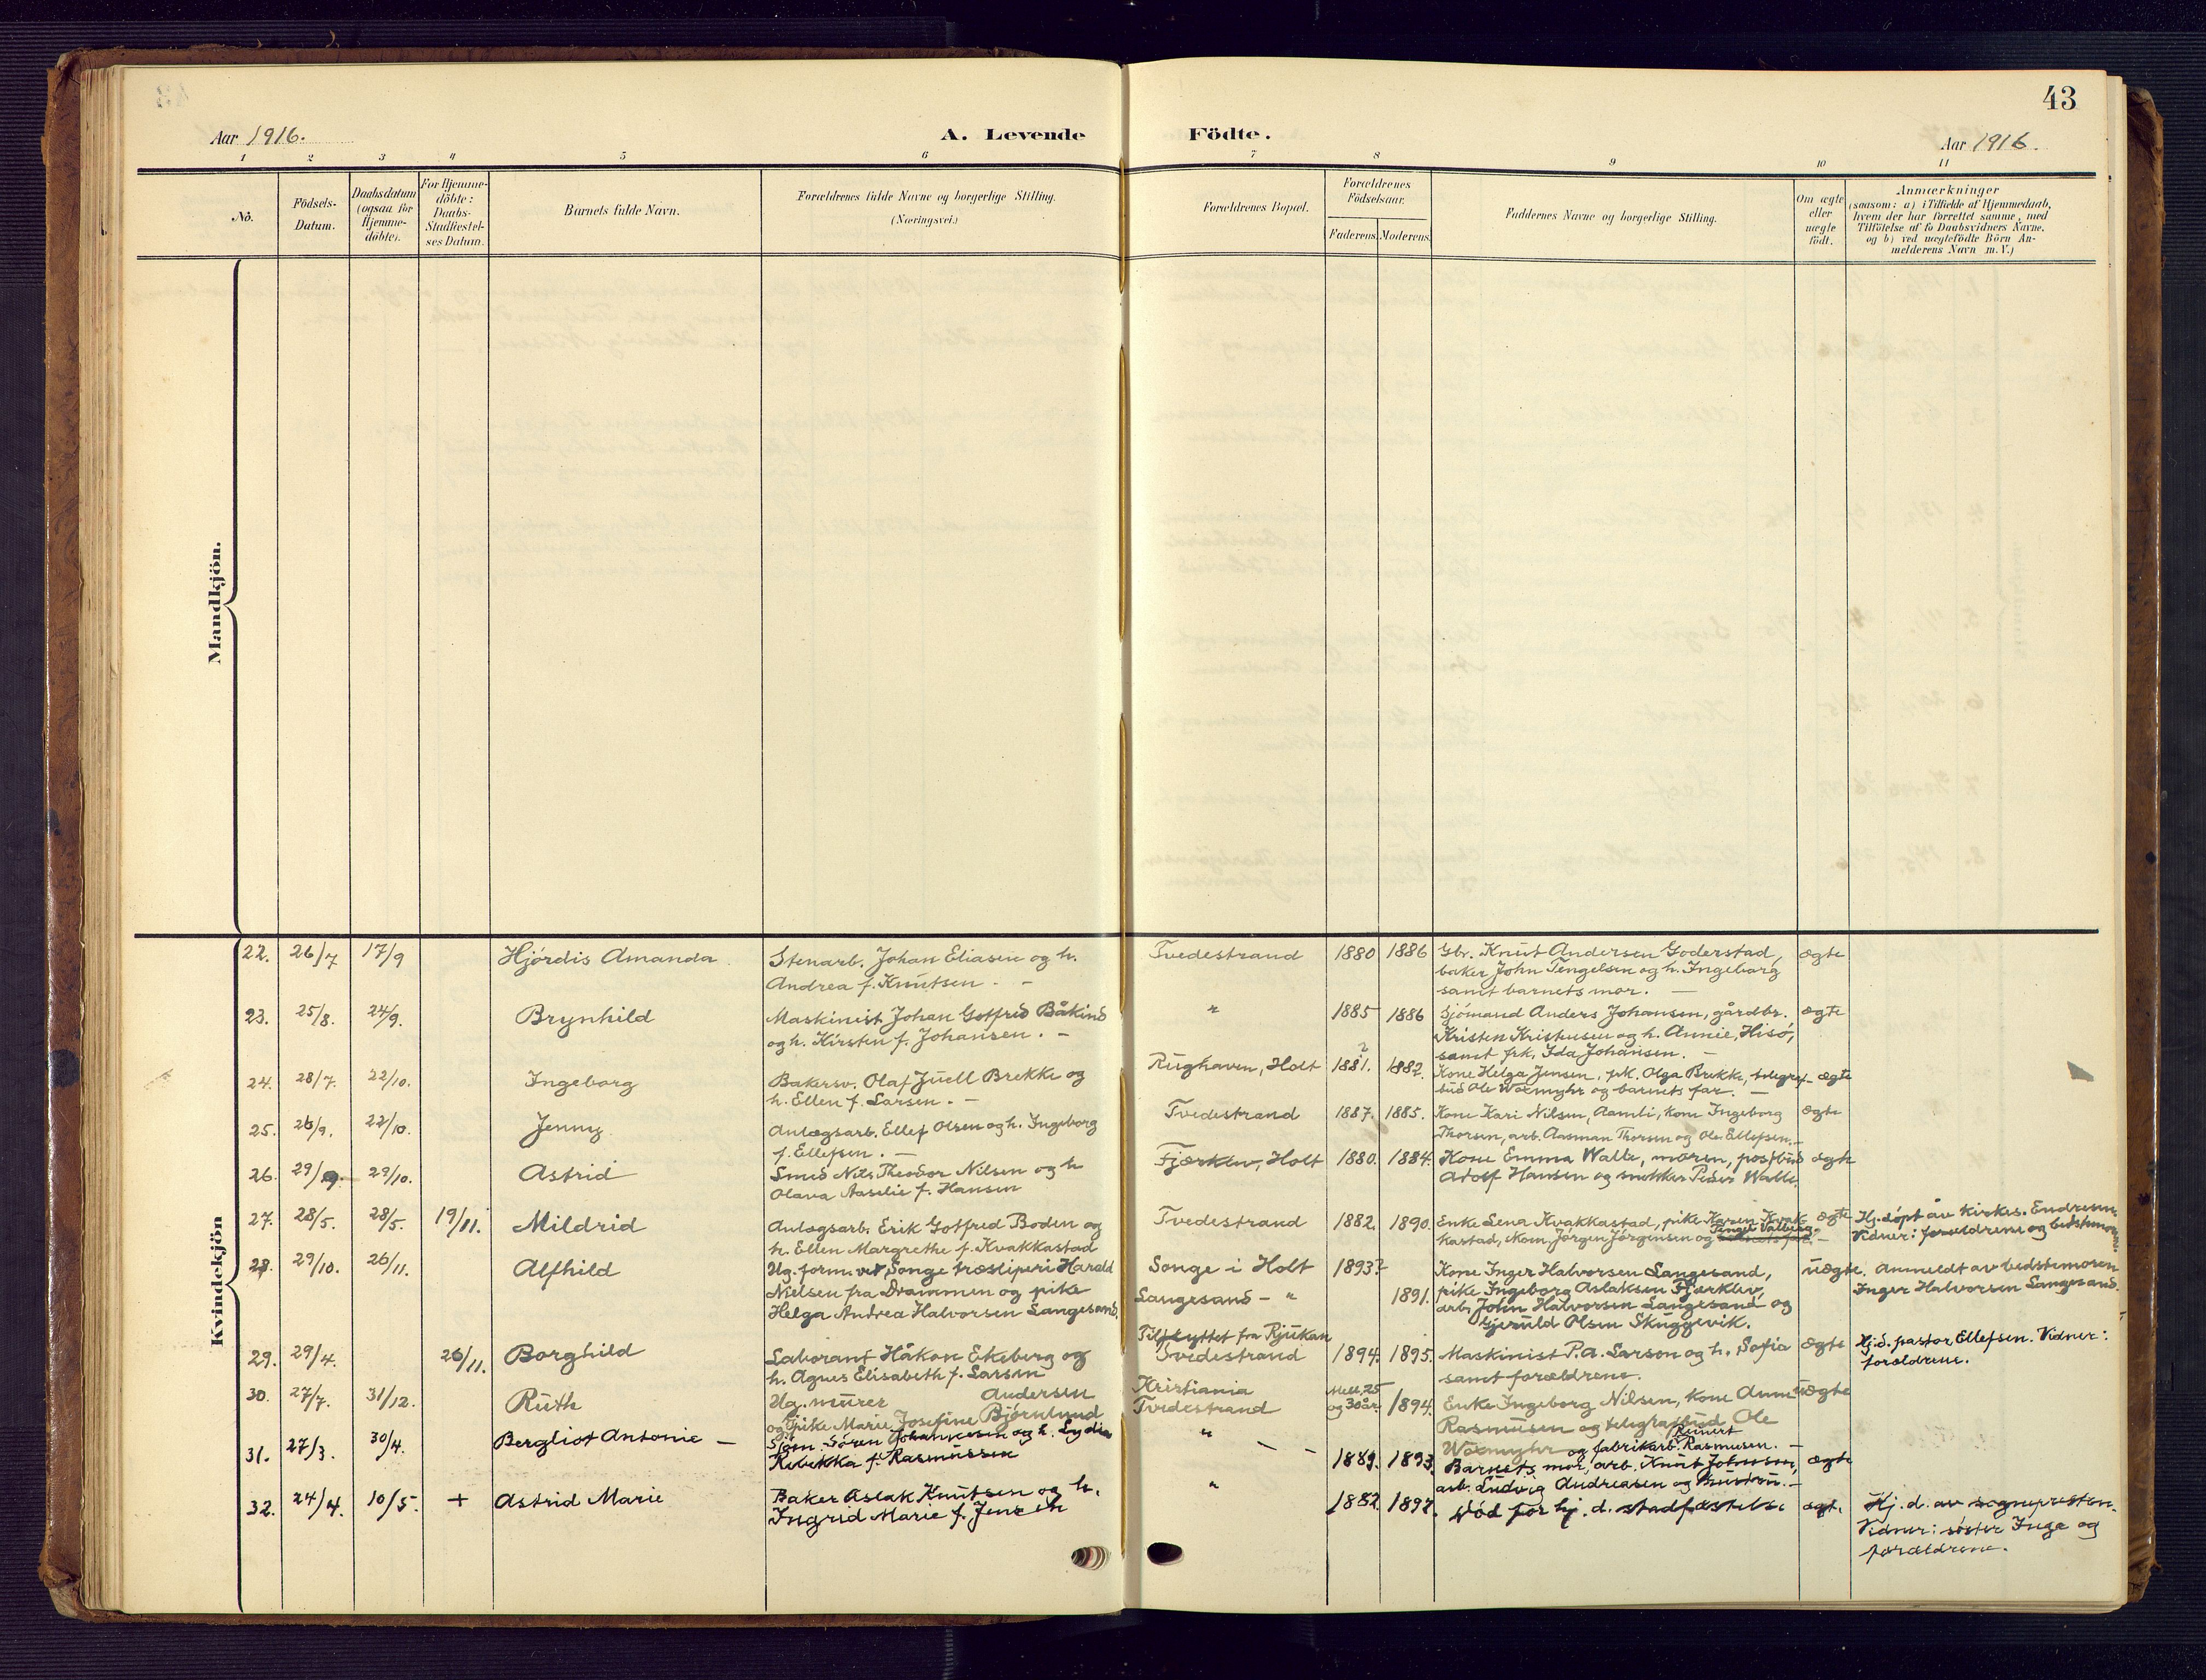 43
Aar 1916.
A. Levende Födte.
Aar 1916.
1 2 3 4 5 6 7 8 9 10 11
No.
Födsels-
Datum.
Daabsdatum
(ogsaa for
Hjemme-
döbte).
For Hjemme-
döbte:
Daabs-
Stadfæstel-
ses Datum.
Barnets fulde Navn.
Forældrenes fulde Navne og borgerlige Stilling.
(Næringsvei.)
Forældrenes Bopæl.
Forældrenes
Födselsaar.
Faderens. Moderens.
Faddernes Navne og borgerlige Stilling.
Om ægte
eller
uægte
födt.
Anmærkninger
(saasom: a) i Tilfælde af Hjemmedaab,
hvem der har forrettet samme, med
Tilföielse af to Daabsvidners Navne,
og b) ved uægtefödte Börn An-
melderens Navn m. V.)
Mandkjön.
Kvindekjön
22. 26/7 17/9 Hjördis Amanda
Stenarb. Johan Eliasen og h.
Andrea f. Knutsen. —
Tvedestrand 1880 1886
Gbr. Knut Andersen Goderstad,
baker John Tengelsen og h. Ingeborg
samt barnets mor. —
ægte
23. 25/8. 24/9. Brynhild
Maskinist Johan Gotfred Båkind
og h. Kirsten f. Johansen. —
" 1885 1886
Sjömand Anders Johansen, gårdbr.
Kristen Kristensen og h. Annie, Hisö,
samt frk. Ida Johansen. —
ægte
24. 28/7. 22/10. Ingeborg
Bakersv. Olaf Juell Brekke og
h. Ellen f. Larsen. —
Rughaven, Holt 1881. 1882.
Kone Helga Jensen, pk. Olga Brekke, telegraf-
bud Ole Woxmyhr og barnets far. —
ægte
25. 26/9. 22/10. Jenny
Anlægsarb. Ellef Olsen og h. Ingeborg
f. Ellefsen. —
Tvedestrand 1887. 1885.
Kone Kari Nilsen, Aamli, kone Ingeborg
Thorsen, arb. Aasman Thorsen og Ole Ellefsen. —
ægte
26. 29/9. 29/10. Astrid
Smed Nils Theodor Nilsen og h
Olava Aaselie f. Hansen
Fjærklev, Holt 1880. 1884.
Kone Emma Walle, moren, postbud
Adolf Hansen og snekker Peder Walle.
ægte
27. 28/5. 28/5. 19/11. Mildrid
Anlægsarb. Erik Gotfred Boden og
h. Ellen Margrethe f. Kvakkastad
Tvedestrand 1882. 1890.
Enke Lena Kvakkastad, pike Karen Kvak-
kastad, Kom. Jørgen Jørgensen og Tengel Valberg. —
ægte
Hj. döpt av kirkes. Endresen.
Vidner: forældrene og bedstemoren.
28. 29/10. 26/11. Alfhild
Ug. form. ved Songe træsliperi Harald
Nielsen fra Drammen og pike
Helga Andrea Halvorsen Langesand.
Songe i Holt 1893?
Langesand - " 1891.
Kone Inger Halvorsen Langesand,
pike Ingeborg Aslaksen Fjærklev,
arb. John Halvorsen Langesand og
Gjeruld Olsen Skuggevik.
uægte.
Anmeldt av bedstemoren
Inger Halvorsen Langesand.
29. 29/4. 26/11. Borghild
Laborant Håkon Ekeberg og
h. Agnes Elisabeth f. Larsen
Tilflyttet fra Rjukan
Tvedestrand 1894. 1895.
Maskinist P. A. Larson og h. Sofia
samt forældrene.
ægte
Hj.d. pastor Ellefsen. Vidner:
forældrene.
30. 27/7. 31/12. Ruth
Ug. murer Andersen
og pike Marie Josefine Björnlund
Kristiania
Tvedestrand
Mell. 25
og 30 år. 1894.
Enke Ingeborg Nilsen, kone Anne
Rasmusen og telegrafbud Ole
Woxmyhr og fabrikarb. Reinert Rasmusen. —
uægte
31. 27/3. 30/4. Bergliot Antonie —
Sjöm. Sören Johannesen og h. Lydia
Rebekka f. Rasmussen
" — — 1889. 1893.
Barnets mor, arb. Knut Johnsen,
arb. Ludvig Andreasen og hustru. —
ægte
32. 24/4. 10/5. + Astrid Marie
Baker Aslak Knutsen og h.
Ingrid Marie f. Jensen
" 1882. 1897.
Död for hj. d. stadfæstelse
ægte.
Hj. d. av sognepresten.
Vidner: søster Inga og
forældrene.